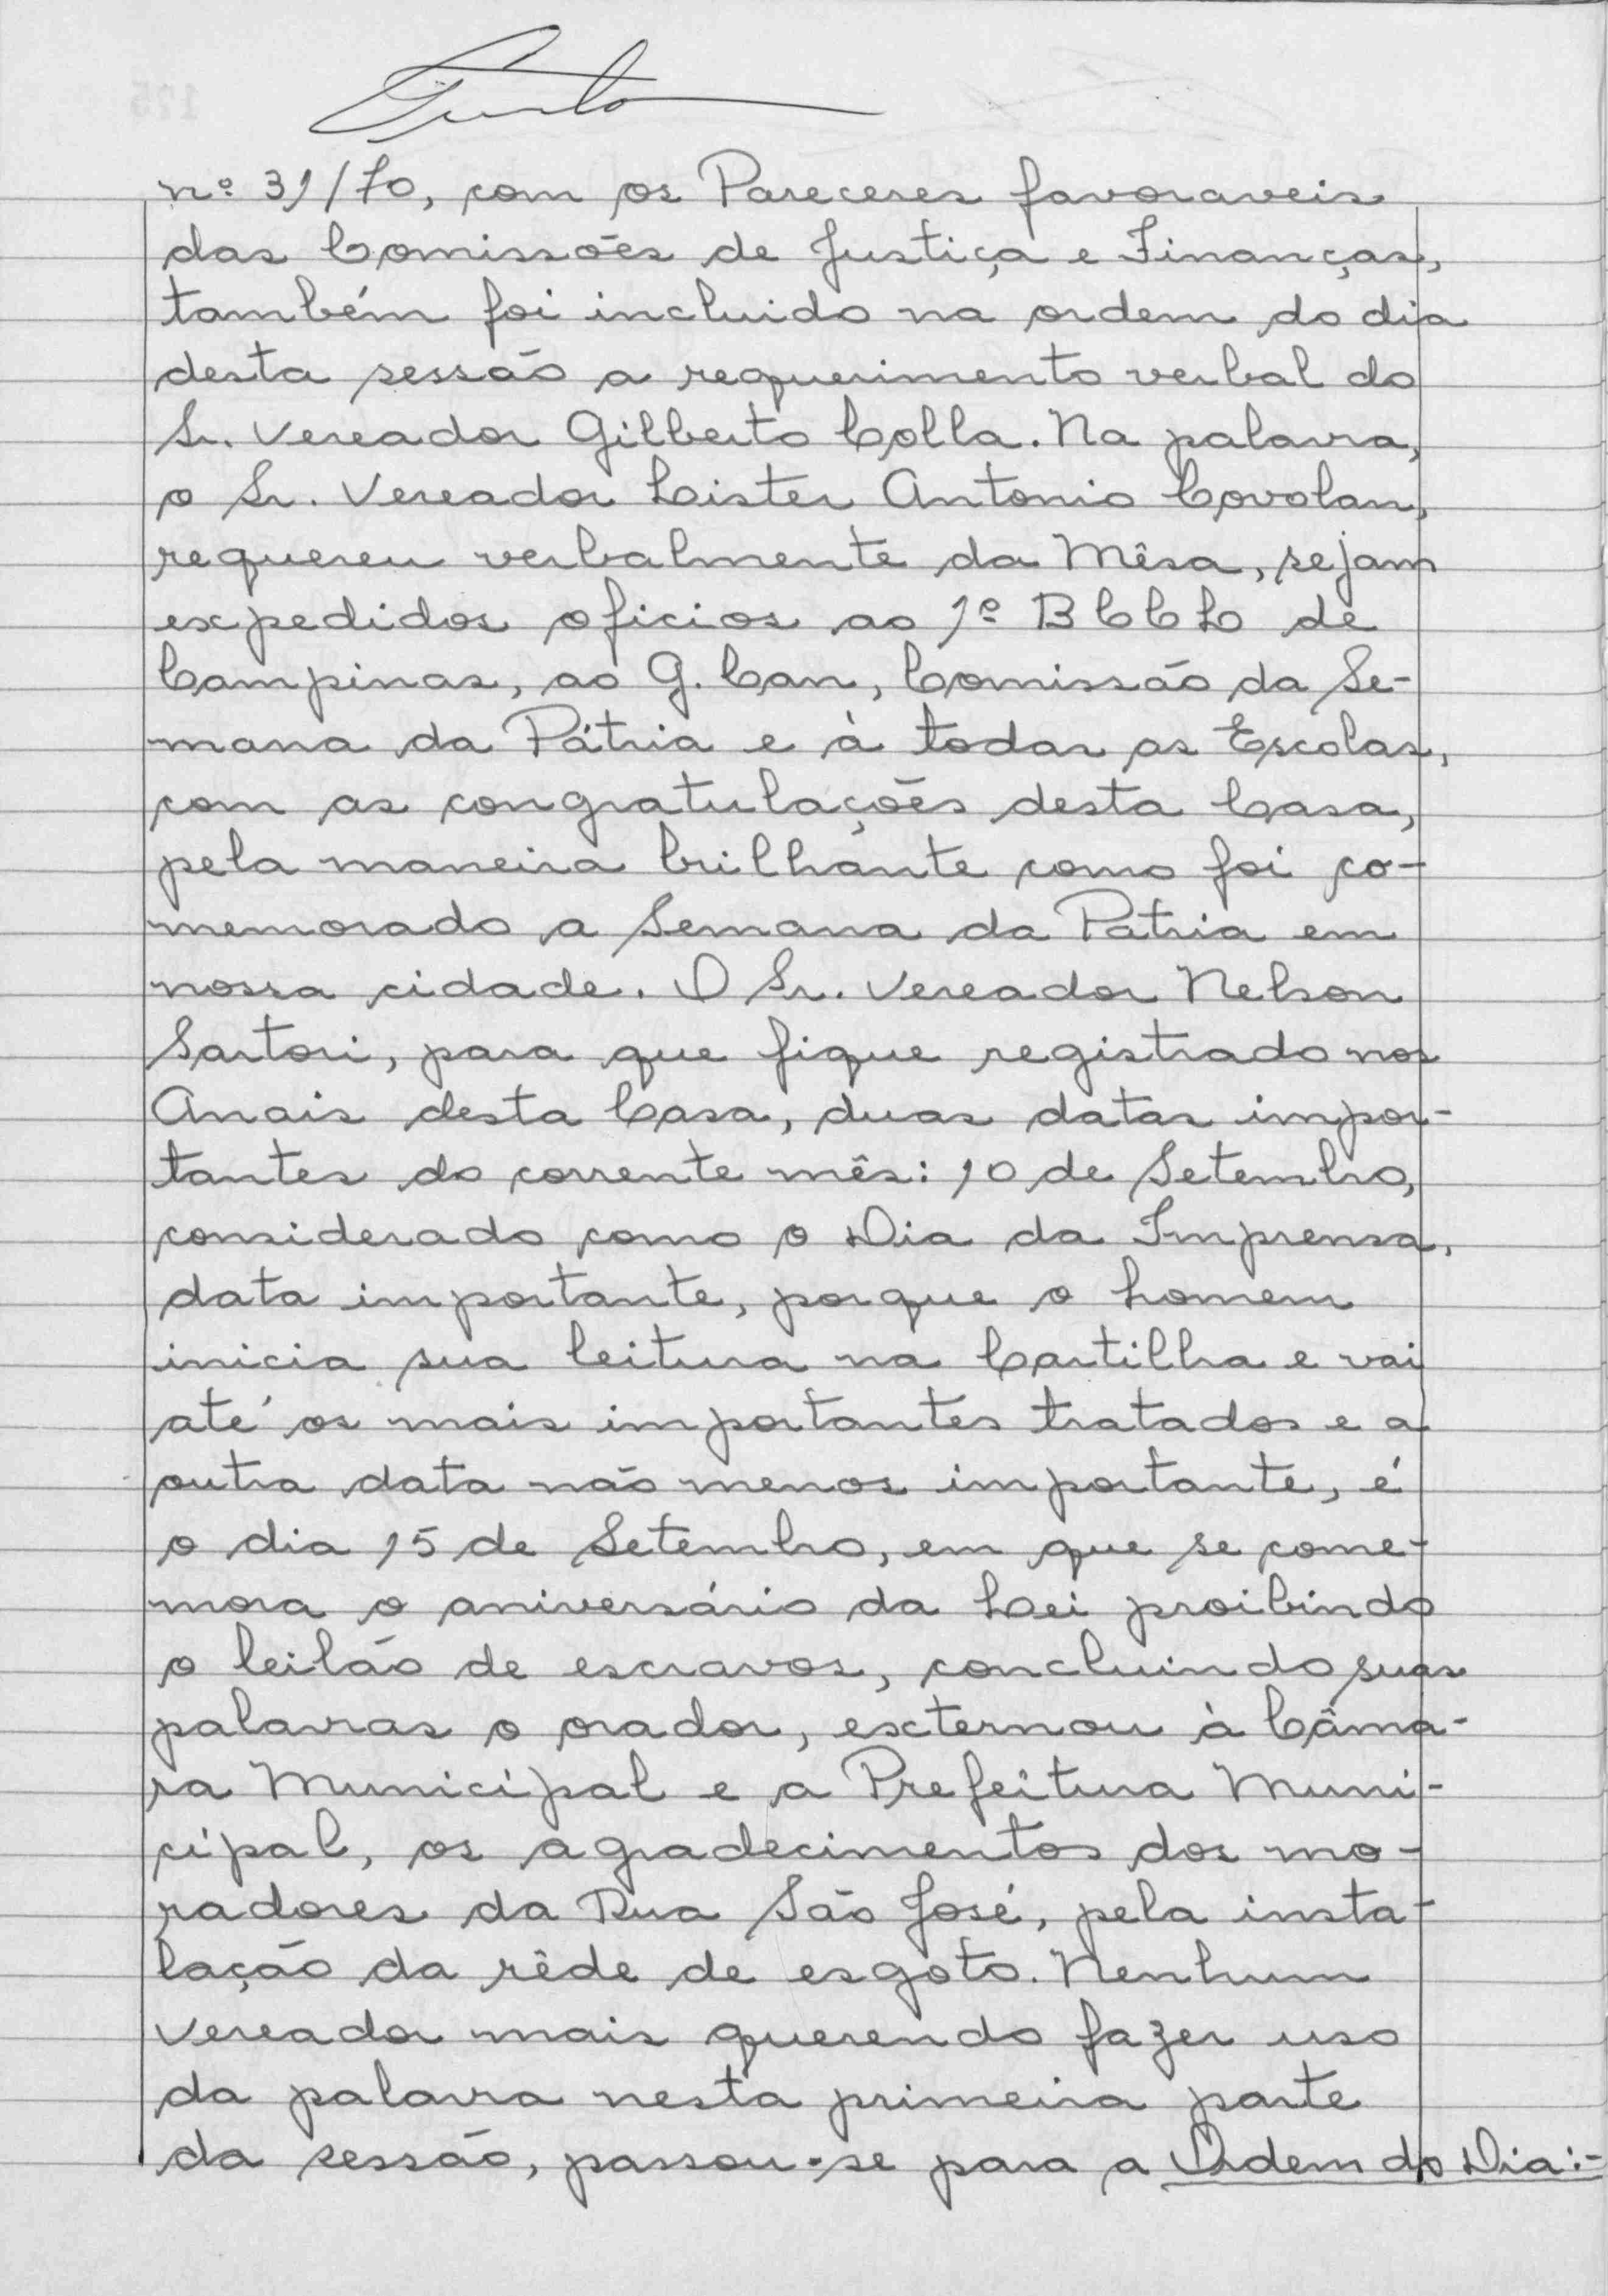 nº 31/70, com os Pareceres favoraveis
das Comissões de Justiça e Finanças,
também foi incluido na ordem do dia
desta sessão a requerimento verbal do
Sr. Vereador Gilberto Colla. Na palavra,
o Sr. Vereador Lister Antonio Covolan,
requereu verbalmente da Mêsa, sejam
expedidos oficios ao 1º BCCL de
Campinas, ao G. Can, Comissão da Se-
mana da Pátria e à todas as Escolas,
com as congratulações desta Casa,
pela maneira brilhante como foi co-
memorado a Semana da Pátria em
nossa cidade. O Sr. Vereador Nelson
Sartori, para que fique registrado nos
Anais desta Casa, duas datas impor-
tantes do corrente mês: 10 de Setembro,
considerado como o Dia da Imprensa,
data importante, porque o homem
inicia sua leitura na Cartilha e vai
até os mais importantes tratados e a
outra data não menos importante, é
o dia 15 de Setembro, em que se come-
mora o aniversário da Lei proibindo
o leilão de escravos, concluindo suas
palavras o orador, externou à Câma-
ra Municipal e a Prefeitura Muni-
cipal, os agradecimentos dos mo-
radores da Rua São José, pela insta-
lação da rêde de esgoto. Nenhum
vereador mais querendo fazer uso
da palavra nesta primeira parte
da sessão, passou-se para a Ordem do Dia:-